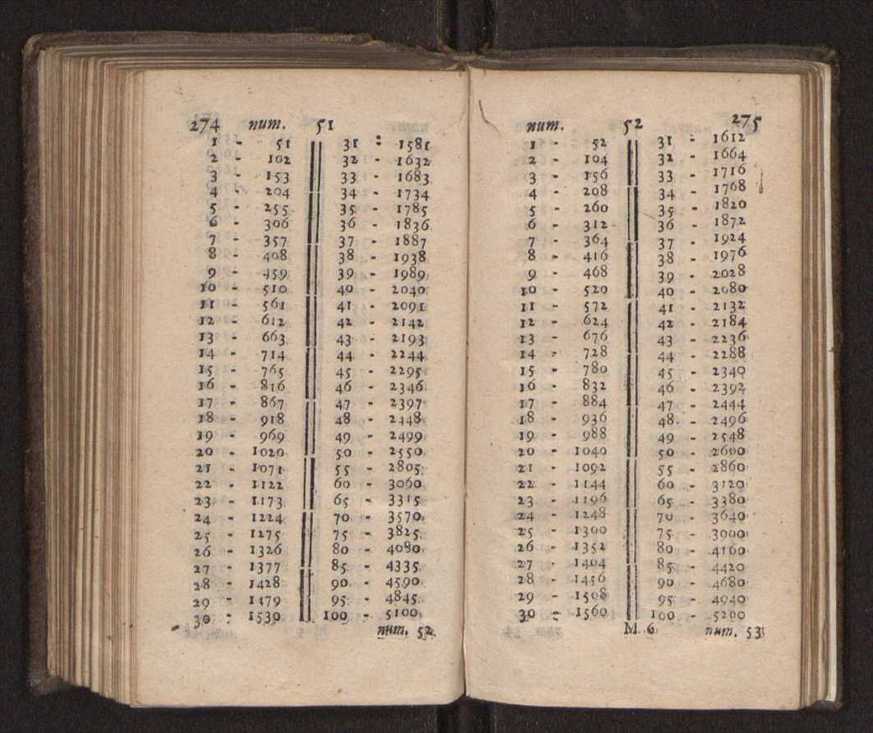 274 num. 51
1 - 51 31 - 1581
2 - 102 32 - 1632
3 - 153 33 - 1683
4 - 204 34 - 1734
5 - 255 35 - 1785
6 - 306 36 - 1836
7 - 357 37 - 1887
8 - 408 38 - 1938
9 - 459 39 - 1989
10 - 510 40 - 2040
11 - 561 41 - 2091
12 - 612 42 - 2142
13 - 663 43 - 2193
14 - 714 44 - 2244
15 - 765 45 - 2295
16 - 816 46 - 2346
17 - 867 47 - 2397
18 - 918 48 - 2448
19 - 969 49 - 2499
20 - 1020 50 - 2550
21 - 1071 55 - 2805
22 - 1122 60 - 3060
23 - 1173 65 - 3315
24 - 1224 70 - 3570
25 - 1275 75 - 3825
26 - 1326 80 - 4080
27 - 1377 85 - 4335
28 - 1428 90 - 4590
29 - 1479 95 - 4845
30 - 1530 100 - 5100
num. 52.
num. 52 275
1 - 52 31 - 1612
2 - 104 32 - 1664
3 - 156 33 - 1716
4 - 208 34 - 1768
5 - 260 35 - 1820
6 - 312 36 - 1872
7 - 364 37 - 1924
8 - 416 38 - 1976
9 - 468 39 - 2028
10 - 520 40 - 2080
11 - 572 41 - 2132
12 - 624 42 - 2184
13 - 676 43 - 2236
14 - 728 44 - 2288
15 - 780 45 - 2340
16 - 832 46 - 2392
17 - 884 47 - 2444
18 - 936 48 - 2496
19 - 988 49 - 2548
20 - 1040 50 - 2600
21 - 1092 55 - 2860
22 - 1144 60 - 3120
23 - 1196 65 - 3380
24 - 1248 70 - 3640
25 - 1300 75 - 3900
26 - 1352 80 - 4160
27 - 1404 85 - 4420
28 - 1456 90 - 4680
29 - 1508 95 - 4940
30 - 1560 100 - 5200
M 6 num. 53